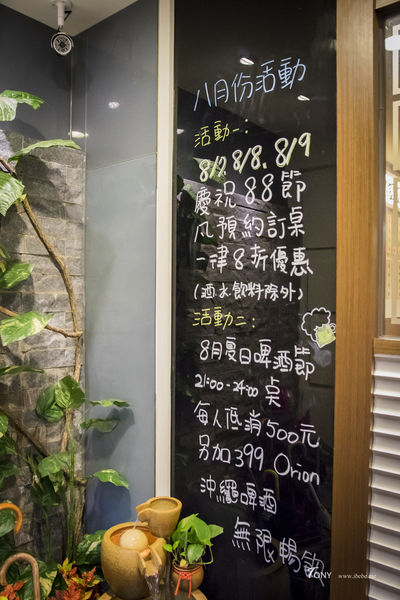 八月份活動
活動一:
8/7. 8/8. 8/9
慶祝88節
凡預約訂桌
一律8折優惠
(酒水飲料除外)
活動二:
8月夏日啤酒節
21:00-24:00
每人低消500元
另加399 Orion
沖繩啤酒
無限暢飲
TONY www.ibebe.me